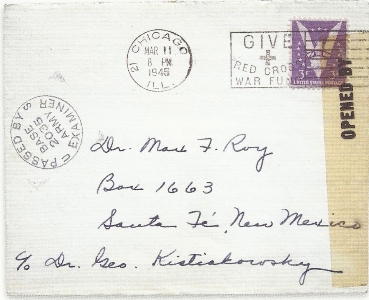 21 CHICAGO
MAR 11
8 PM
1945
ILL.
GIVE!
RED CROSS
WAR FUND
3¢
UNITED STATES POSTAGE
OPENED BY
PASSED BY U S
ARMY
EXAMINER
BASE
2035
Dr. Max F. Roy
Box 1663
Santa Fé, New Mexico
c/o Dr. Geo. Kistiakowsky